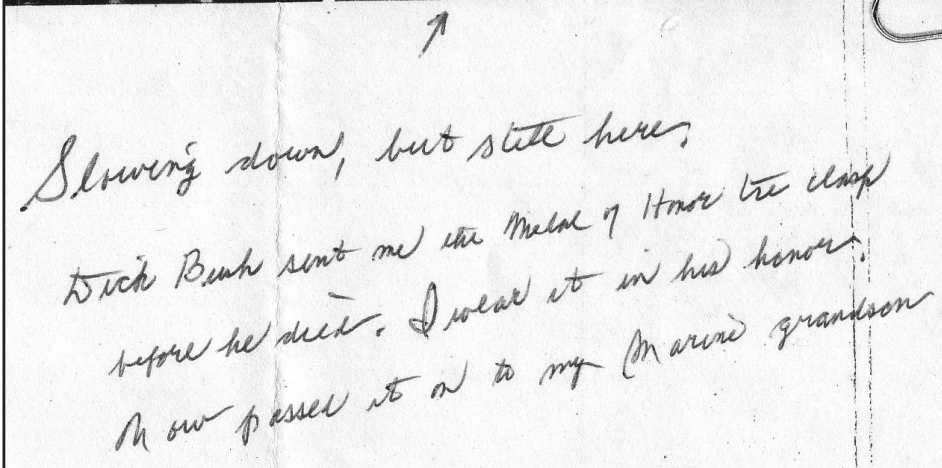 Slowing down, but still here,
Dick Bush sent me the Medal of Honor tie clasp
before he died. I wear it in his honor.
Now passed it on to my Marine grandson